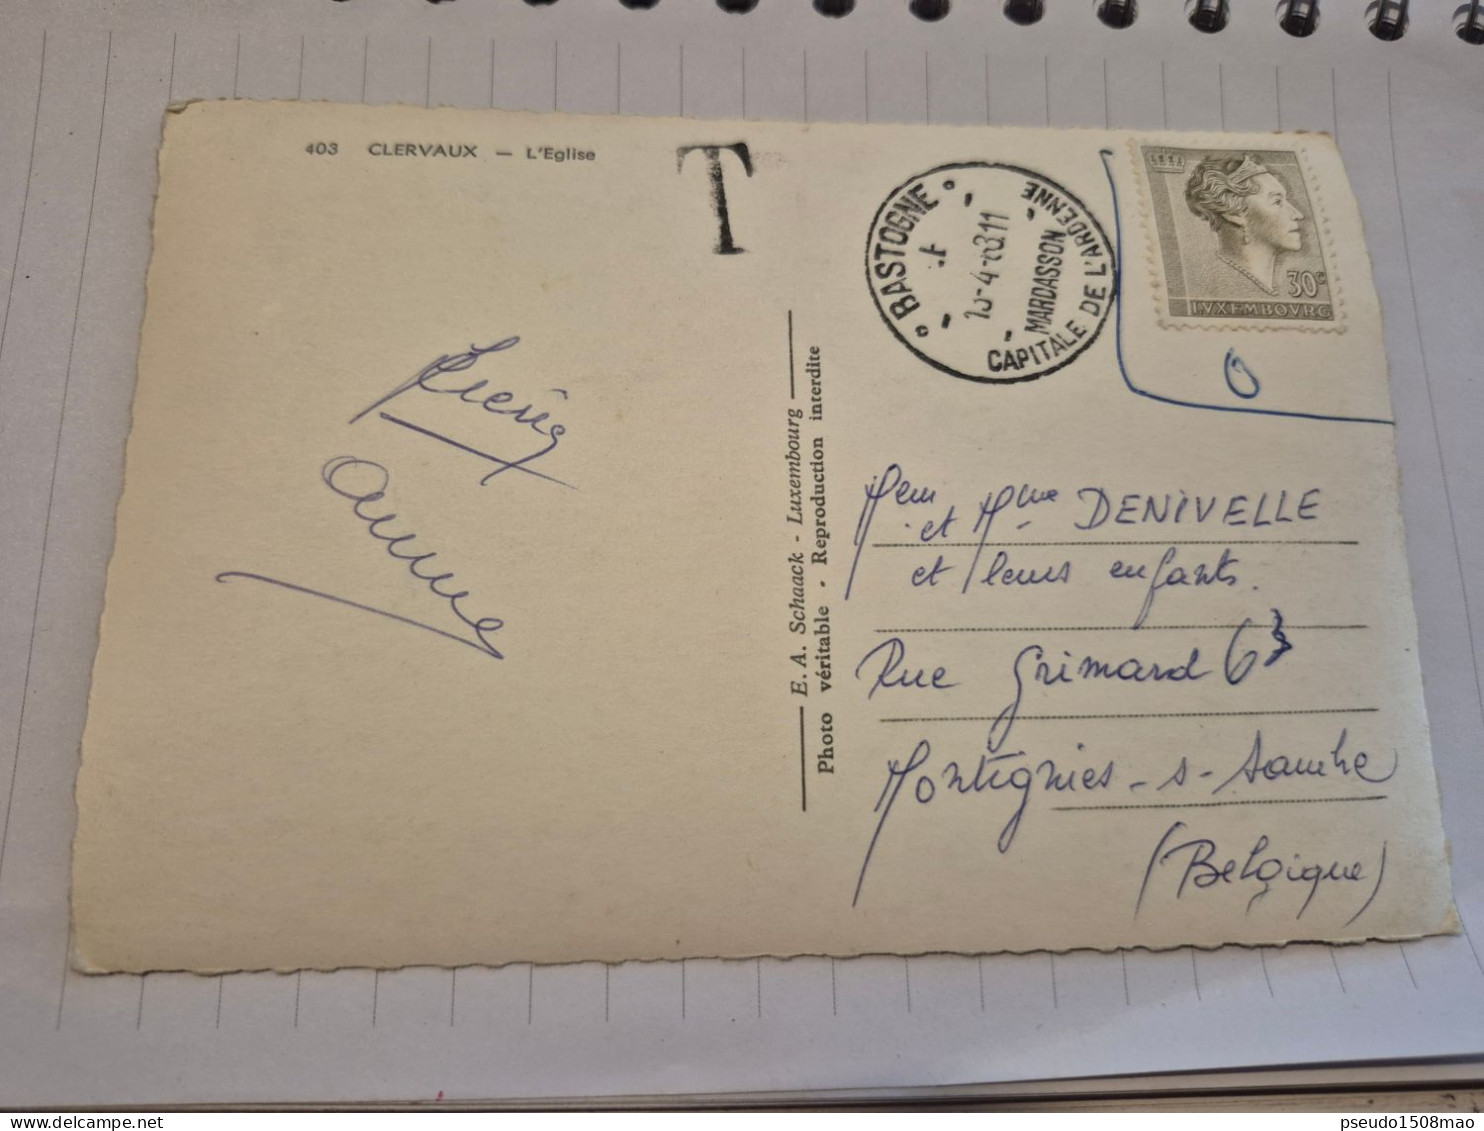 403 CLERVAUX — L'Eglise
T
BASTOGNE
-4-6311
MARDASSON
CAPITALE DE L'ARDENNE
30c
LVXEMBOVRG
O
anne
E. A. Schaack - Luxembourg
Photo véritable - Reproduction interdite
et Mme DENIVELLE
et leurs enfants.
Rue Grimard 63
Montignies-s-Sambre
(Belgique)
pseudo1508mao